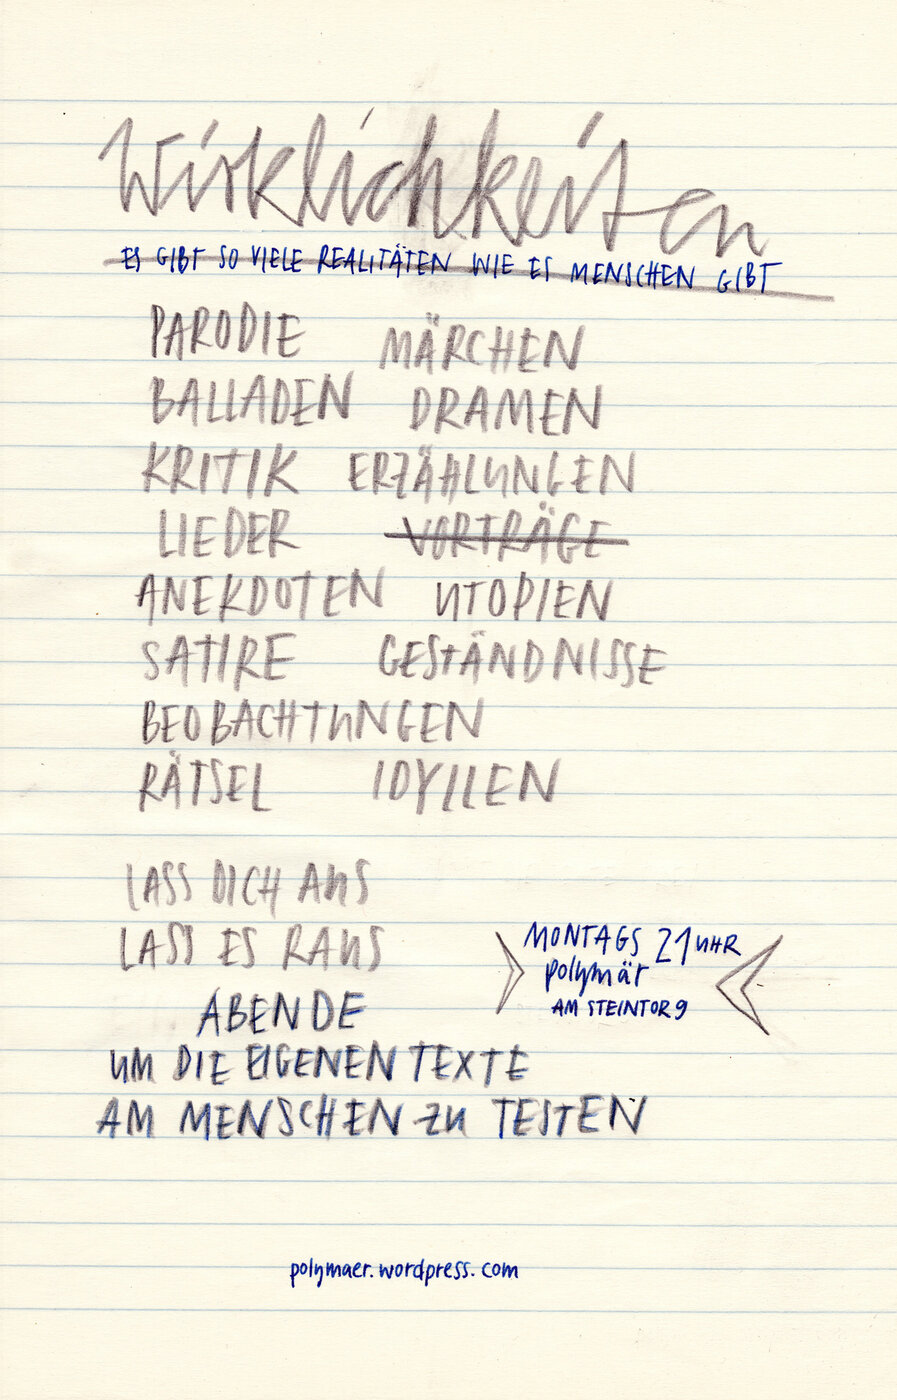 Wirklichkeiten
ES GIBT SO VIELE REALITÄTEN WIE ES MENSCHEN GIBT
PARODIE MÄRCHEN
BALLADEN DRAMEN
KRITIK ERZÄHLUNGEN
LIEDER VORTRÄGE
ANEKDOTEN UTOPIEN
SATIRE GESTÄNDNISSE
BEOBACHTUNGEN
RÄTSEL IDYLLEN
LASS DICH AUS
LASS ES RAUS
MONTAGS 21 UHR
polymär
AM STEINTOR 9
ABENDE
UM DIE EIGENEN TEXTE
AM MENSCHEN ZU TESTEN
polymaer.wordpress.com